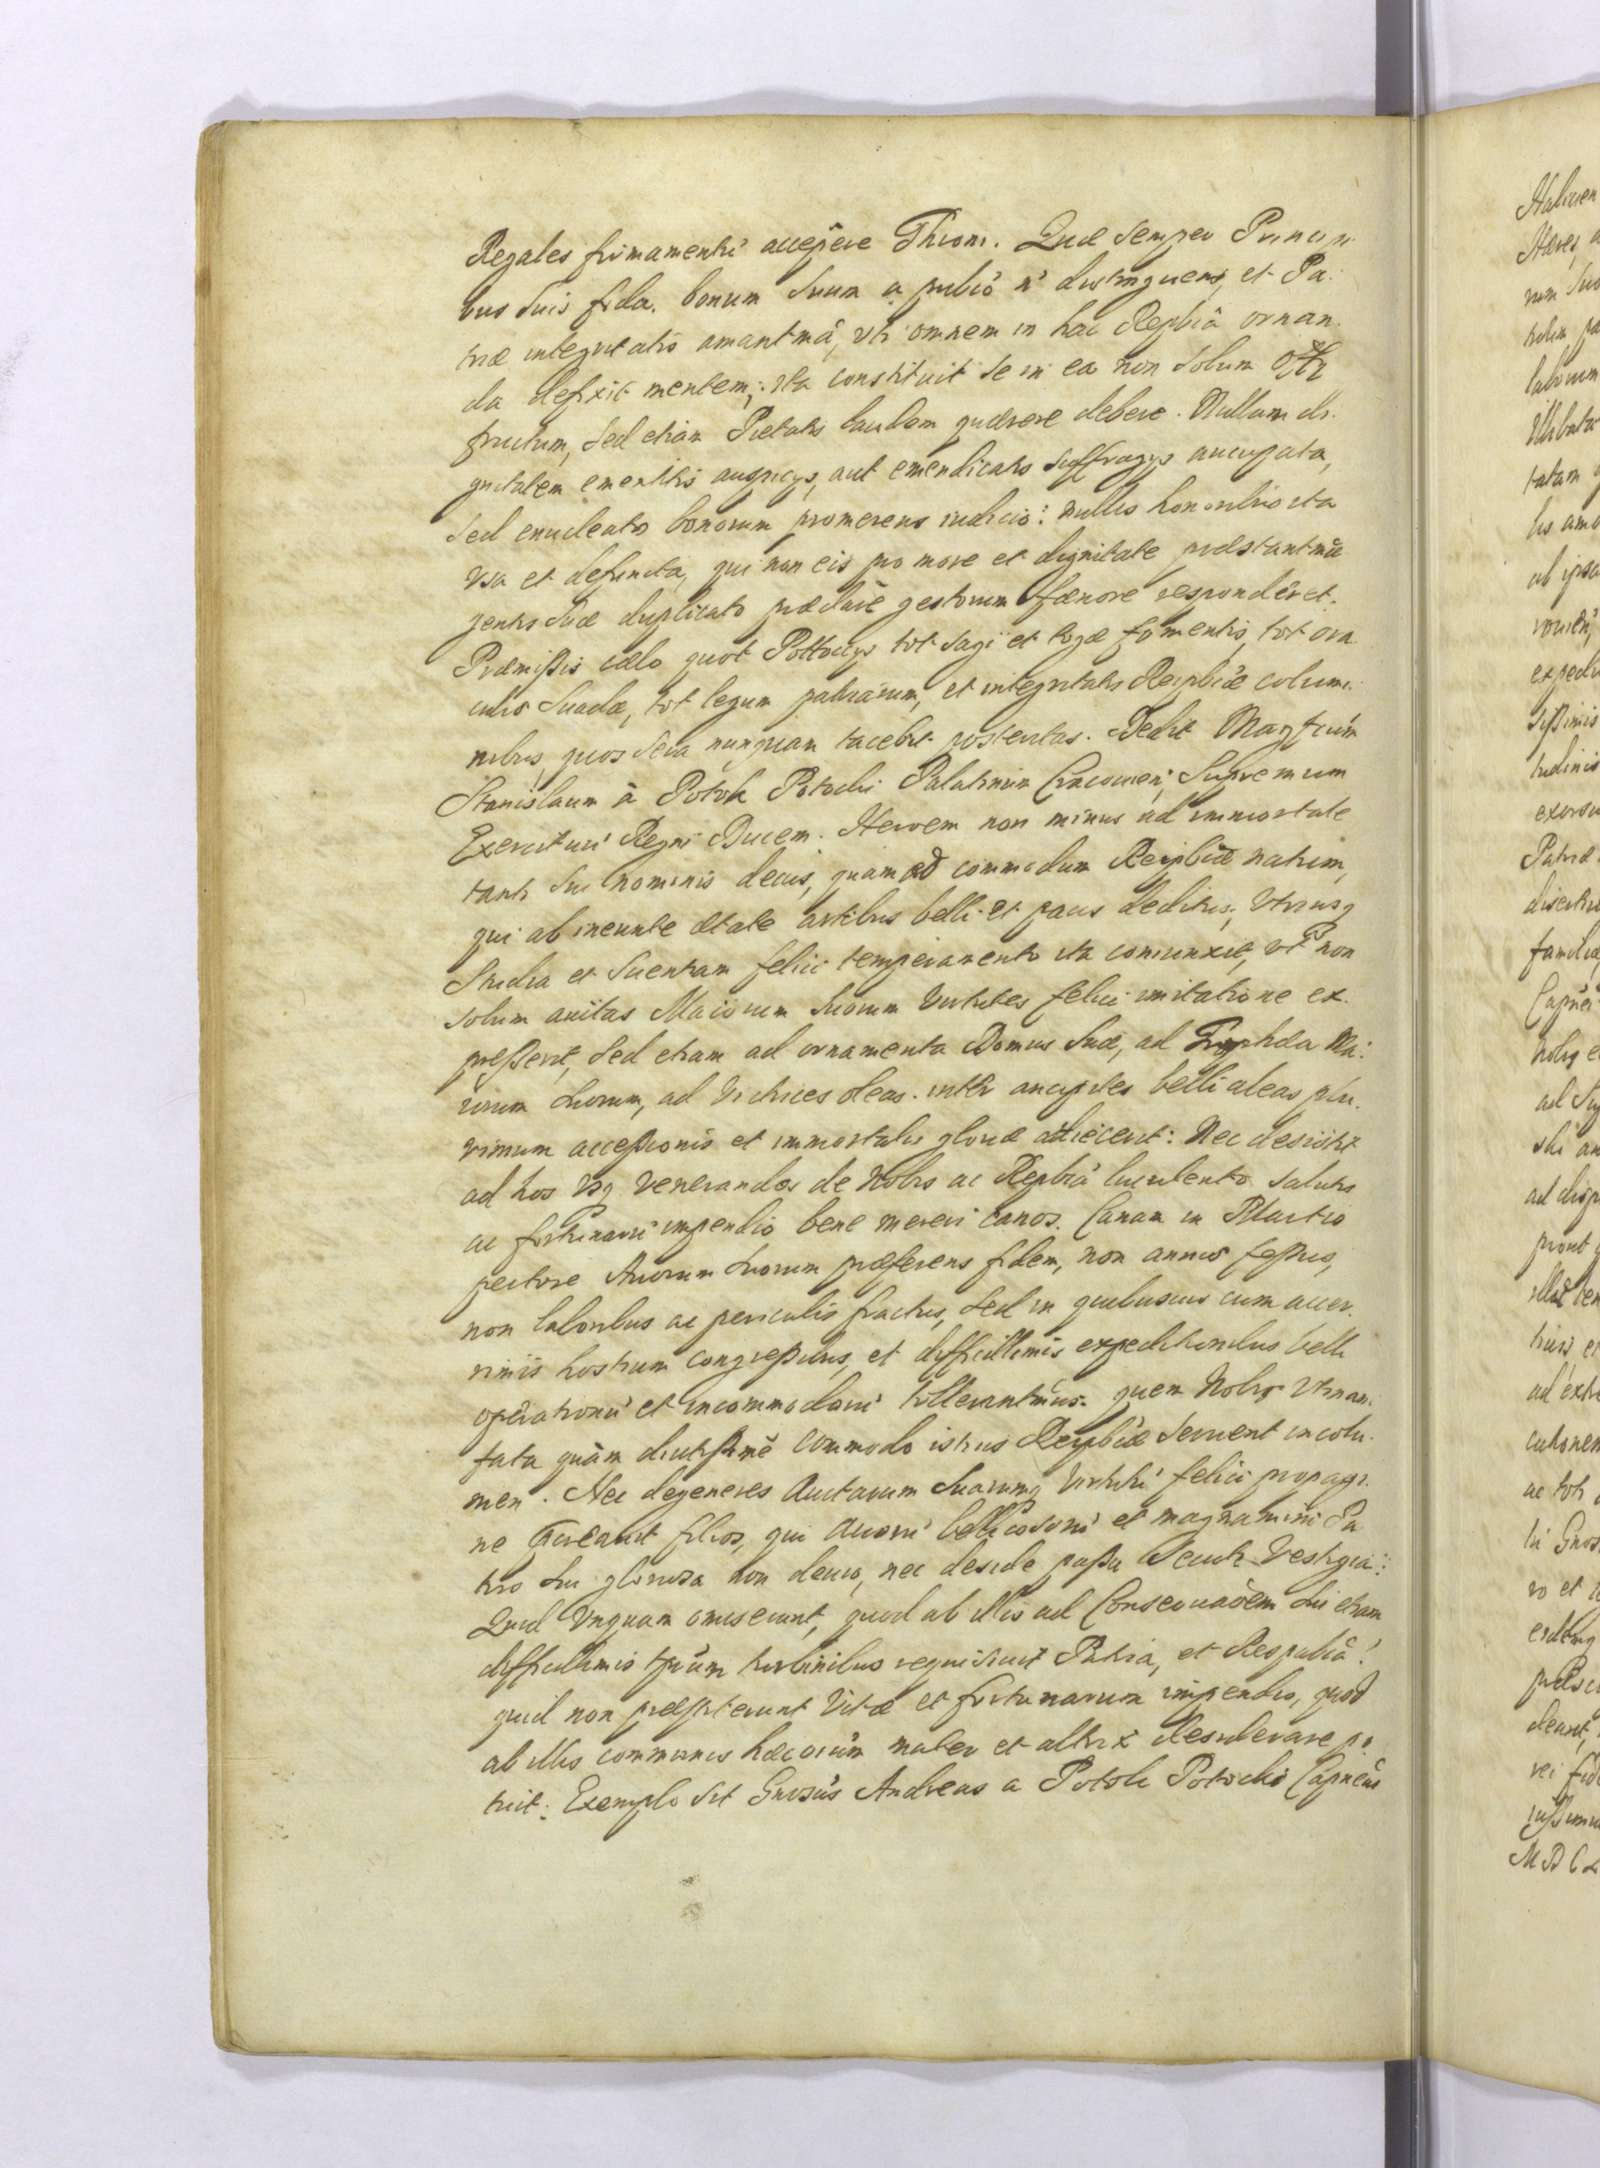 Regales firmamentũ accepêre Throni. Quæ semper Princip
bus suis fida, bonum suum a publiô ñ distinguens, et Pa-
triæ integritatis amantmâ, vti omnem in hac Repblicâ ornan
da defixit mentem; ita constituit se in ea non solum
fructum, sed etiam Pietatis laudem quærere debere. Nullam di-
gnitatem ementitis auspicys, aut emendicatis suffragys aucupata,
sed enucleato bonorum promerens iudicio: nullis honoribus ita
vsa et defuncta, qui non eis pro more et dignitate præstantmæ
gentis suæ duplicato præclarè gestorum fænore respondêret.
Præmissis cælo quot Potocys tot sagi et togæ fomentis, tot ora
culis suadæ, tot legum patriarum, et integritatis Reipblicæ colum-
nibus, quos sera nunquam tacebit posteritas. Dedit Magficum
Stanislaum à Potok Potocki Palatinum Cracouien, Supremum
Exercituũ Regni Ducem. Heroem non minus ad immortale
tanti sui nominis decus, quam ad commodum Reipblicæ natum,
qui ab ineunte ætate artibus belli et pacis deditus, vtriusq
studia et scientiam felici temperamento ita coniunxit, vt non
solum auitas Maiorum suorum virtutes felici imitatione ex-
presserit, sed etiam ad ornamenta Domus suæ, ad Trophæa Ma-
iorum suorum, ad victrices oleas inter ancipites belli aleas plu-
rimum accessionis et immortalis gloriæ adiecerit: Nec desistit
ad hos vsq venerandos de Nobis ac Repblicâ luculento salutis
ac fortunarũ impendio bene mereri canos. Canam in Martio
pectore Auorum suorum præferens fidem, non annis fessus,
non laboribus ac periculis fractus, sed in quibusuis cum acer-
rimis hostium congressibus, et difficillimis expeditionibus belli
operationũ et incommodorũ tollerantmus. quem Nobis vtinam
fata quàm diutissimè commodo istius Reipblicæ seruent incolu-
men. Nec degeneres auitarum suarumq virtutũ felici propagi-
ne procreauit filios, qui auorũ bellicosorũ et magnanimi Pa
tris sui gloriosa non deuio, nec deside passu secuti vestigia:
Quid vnquam omiserunt, quod ab illis ad Conseruaõem sui etiam
difficillimis tpũm turbinibus requisiuit Patria, et Respublicâ!
quid non præstiterunt vitæ et fortunarum impendio, quod
ab illis communis hæroum mater et altrix desiderare po
tuit: Exemplo sit Gnosus Andreas a Potok Potocki Capneus